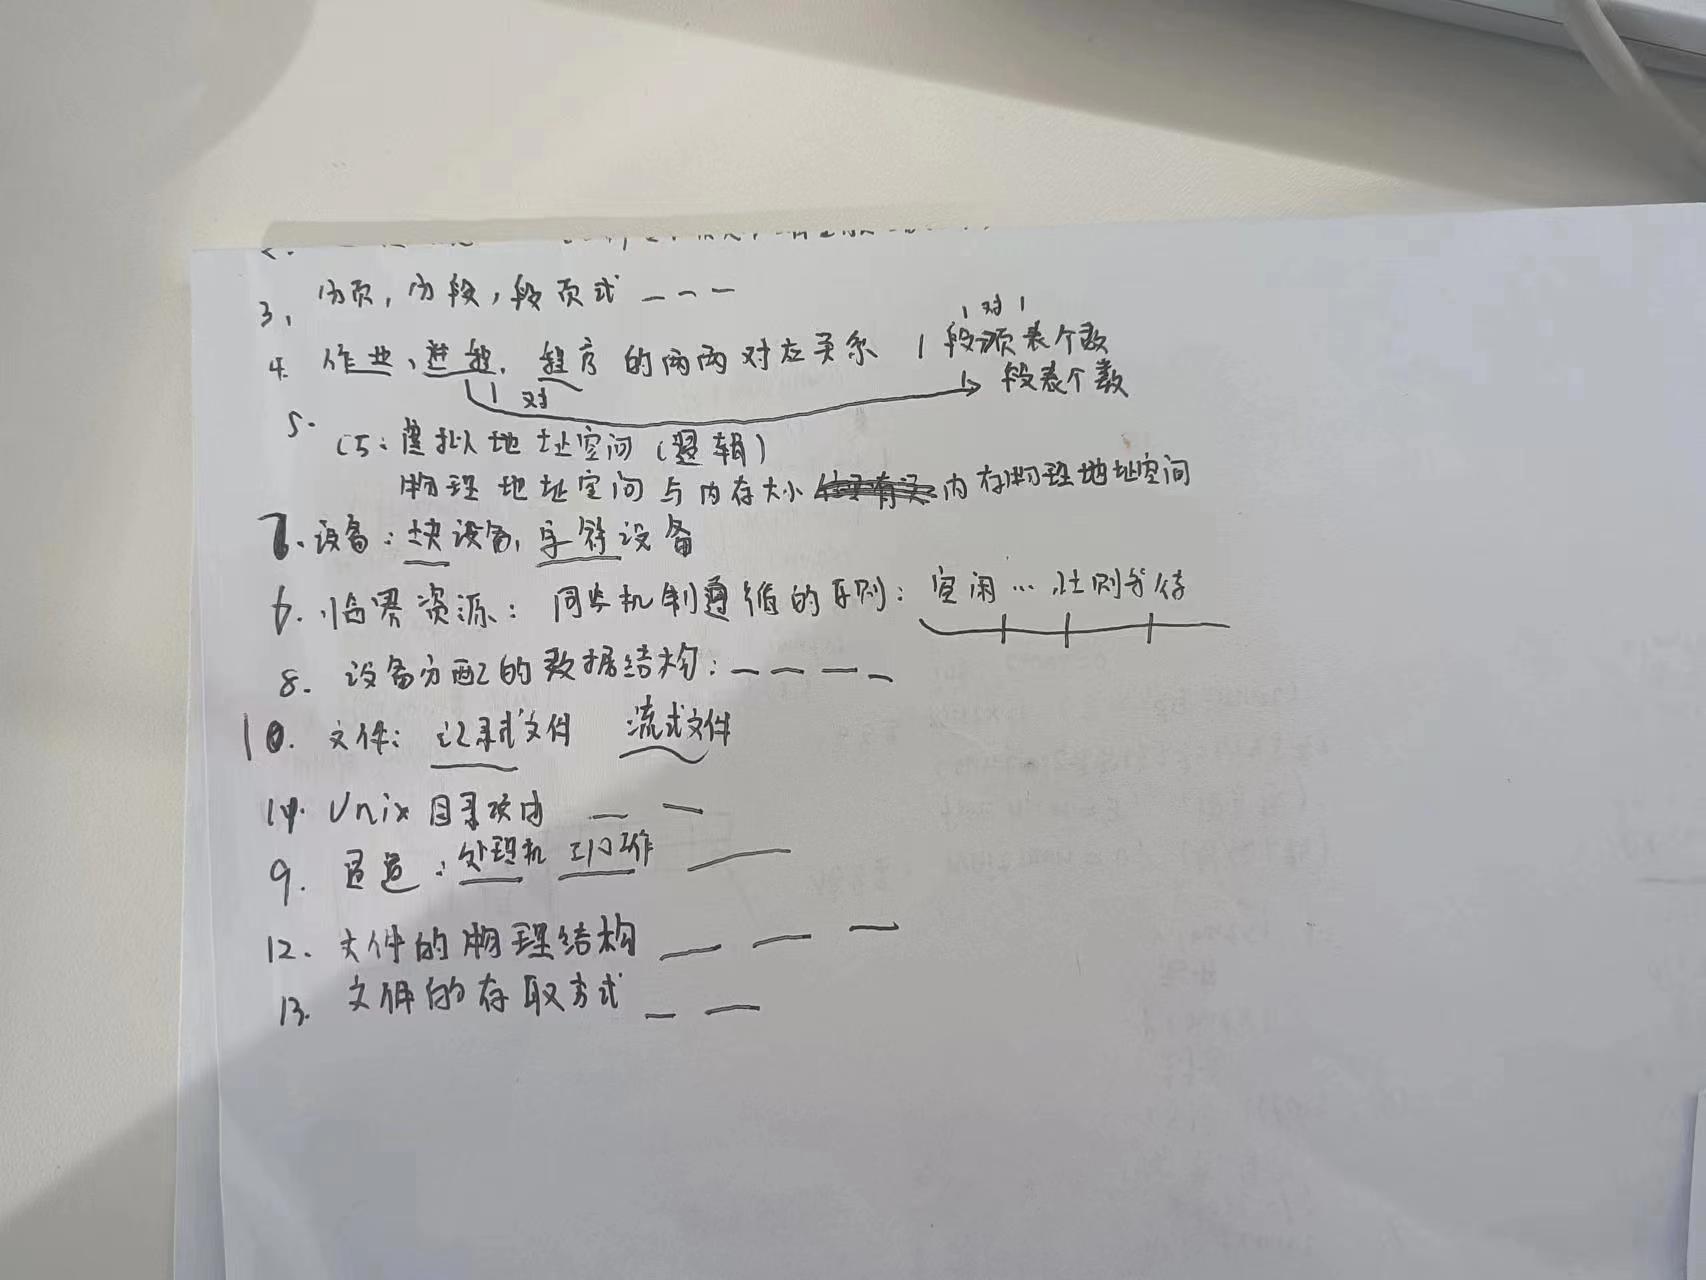 3, 分页,分段,段页式 — — —
1 对 1
4. 作业、进程、程序的两两对应关系 1 段页表个数
1 对
1 段表个数
5. C5:虚拟地址空间(逻辑)
物理地址空间与内存大小 内存物理地址空间
7. 设备:块设备,字符设备
6. 临界资源:同步机制遵循的原则:空闲…让则等待
8. 设备分配的数据结构:— — — —
10. 文件:记录式文件 流式文件
14. Unix目录项由 — —
9. 通道:处理机 I/O工作 —
12. 文件的物理结构 — — —
13. 文件的存取方式 — —